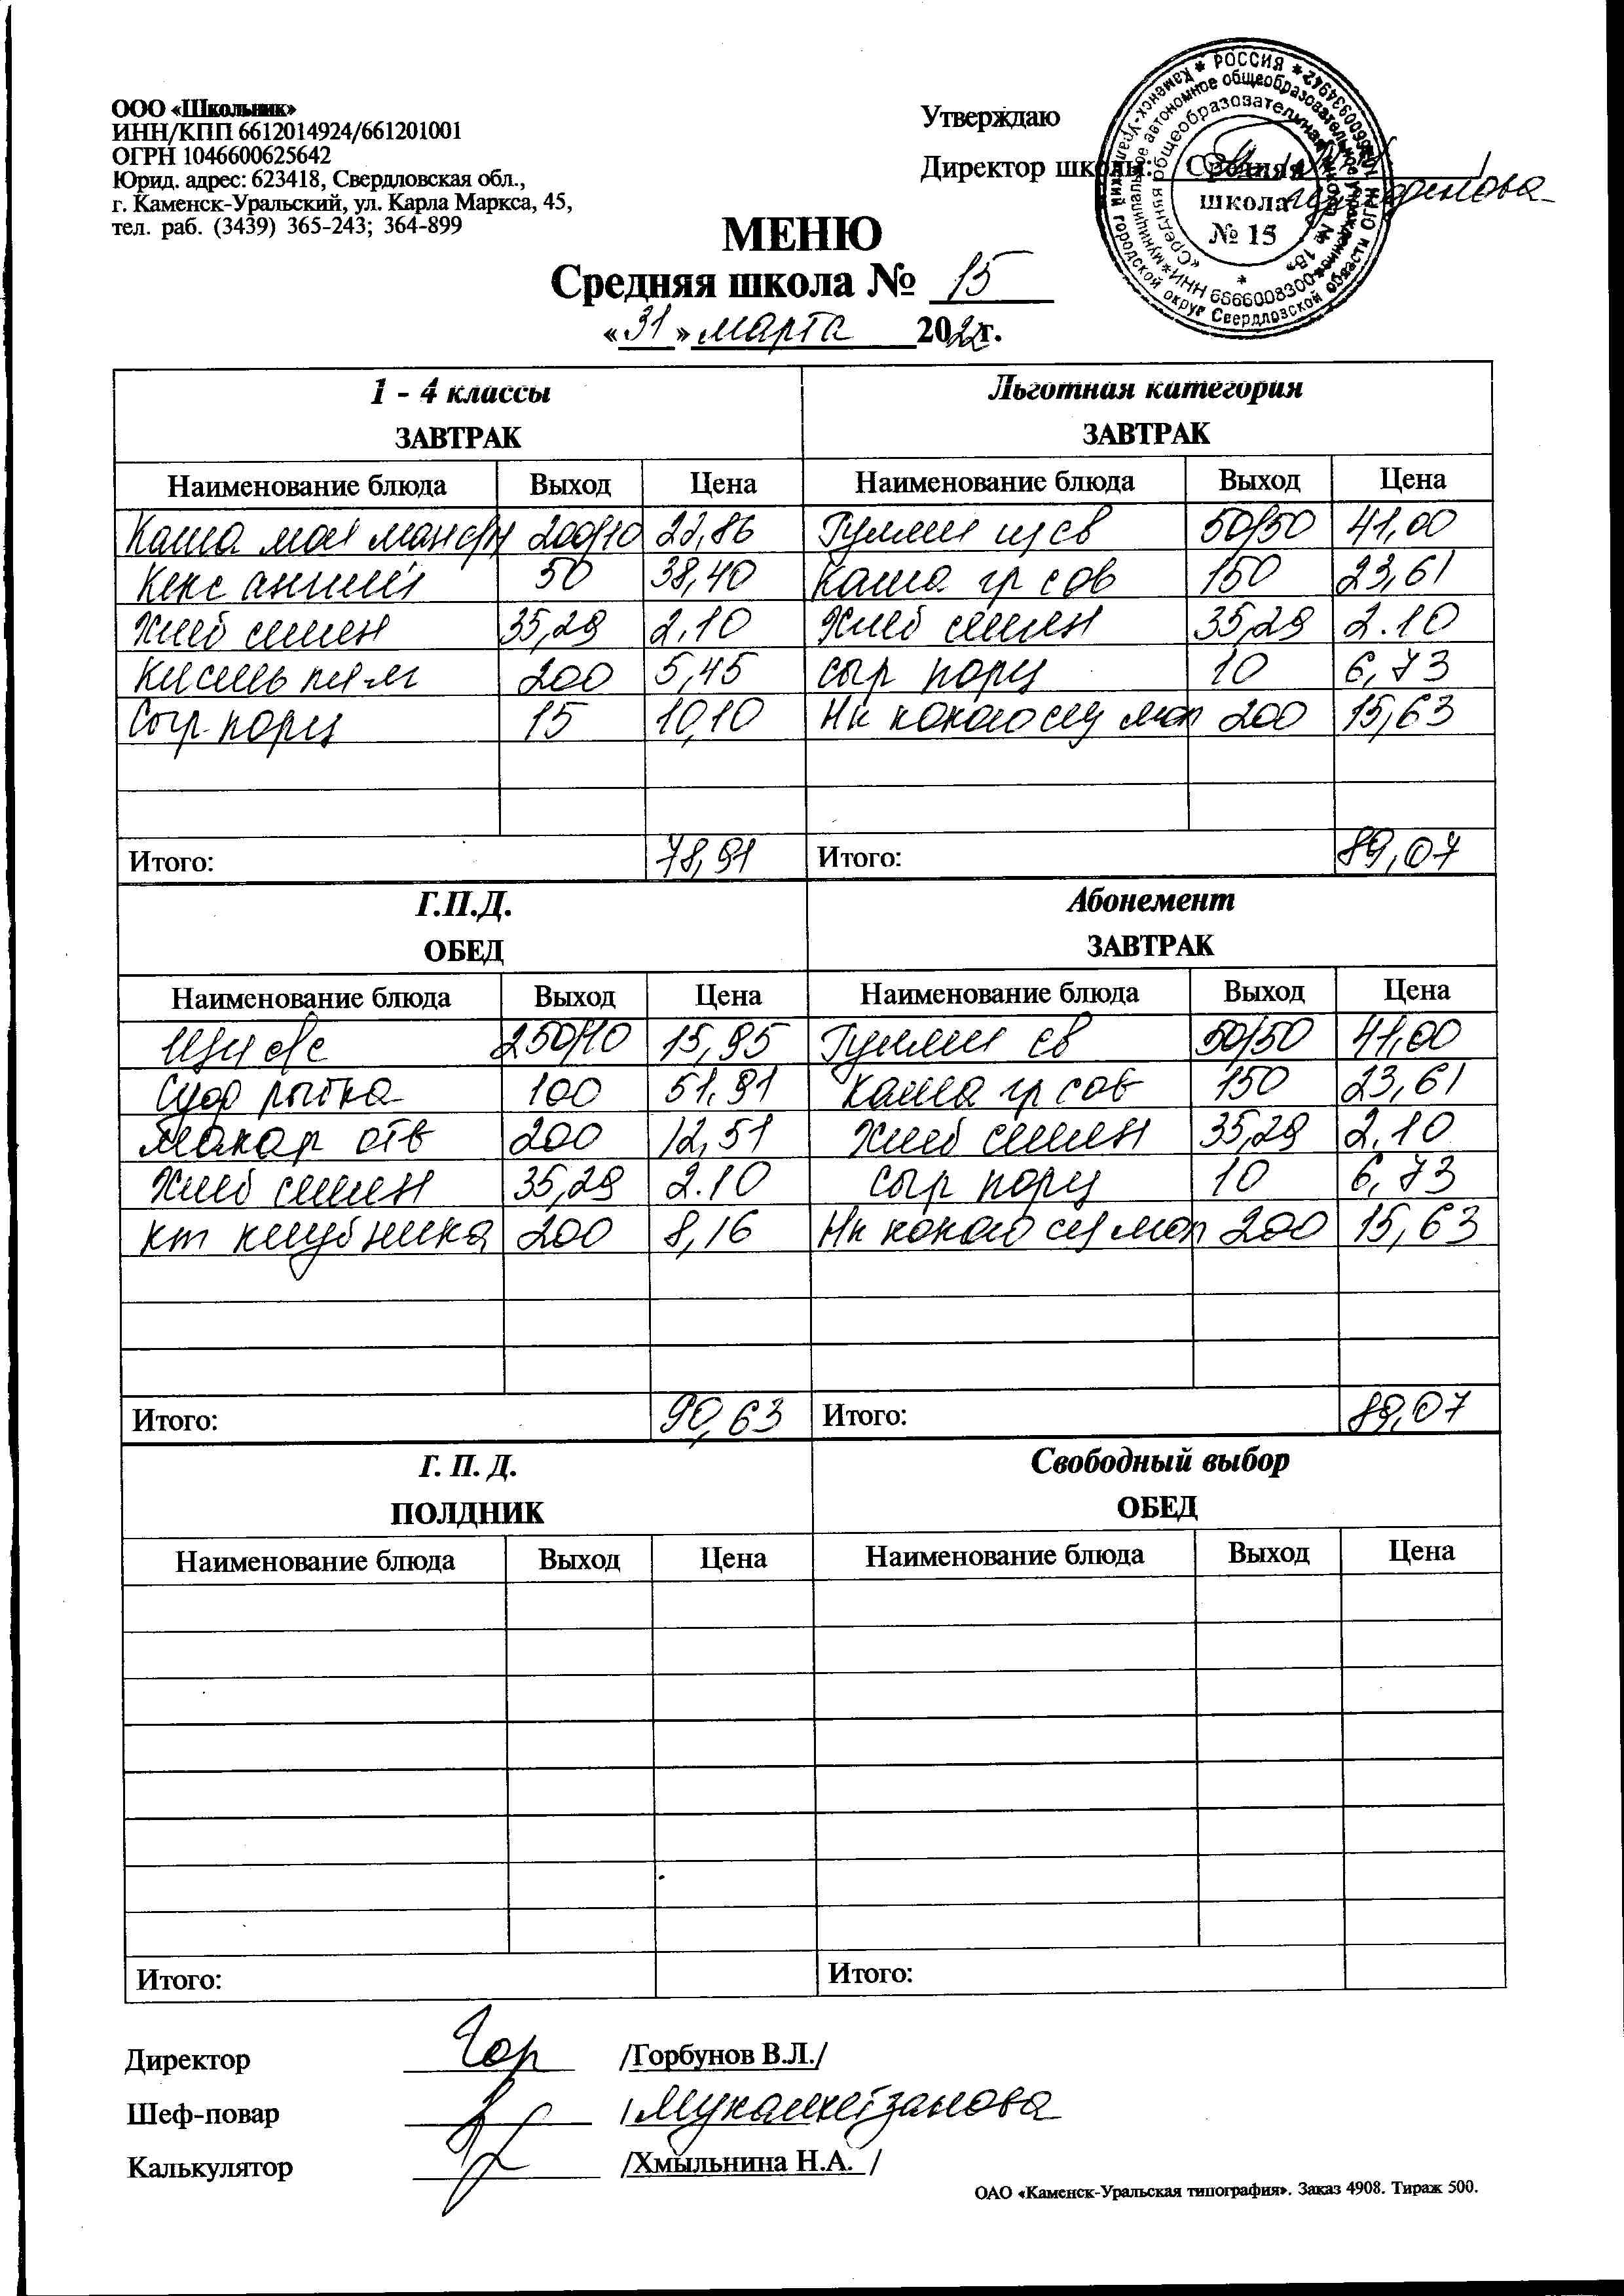 ООО «Школьник»
ИНН/КПП 6612014924/661201001
ОГРН 1046600625642
Юрид. адрес: 623418, Свердловская обл.,
г. Каменск-Уральский, ул. Карла Маркса, 45,
тел. раб. (3439) 365-243; 364-899
Утверждаю
Директор школы:
Средняя
школа
№ 15
МЕНЮ
Средняя школа № 15
«31» марта 2022г.
1 - 4 классы
ЗАВТРАК
Наименование блюда Выход Цена
Каша мол ман с/м 200/10 22,86
Кекс англий 50 38,40
Хлеб семен 35,29 2.10
Кисель пл-яг 200 5,45
Сыр порц 15 10,10
Итого: 78,91
Льготная категория
ЗАВТРАК
Наименование блюда Выход Цена
Гуляш из св 50/50 41,00
Каша гр с ов 150 23,61
Хлеб семен 35,29 2.10
Сыр порц 10 6,73
Нк какао сгу мол 200 15,63
Итого: 89,07
Г.П.Д.
ОБЕД
Наименование блюда Выход Цена
Щи с/с 250/10 15,95
Суф рыбка 100 51,91
Макар отв 200 12,51
Хлеб семен 35,29 2.10
кт клубника 200 8,16
Итого: 90,63
Абонемент
ЗАВТРАК
Наименование блюда Выход Цена
Гуляш св 50/50 41,00
Каша гр с ов 150 23,61
Хлеб семен 35,29 2.10
Сыр порц 10 6,73
Нк какао сгу мол 200 15,63
Итого: 89,07
Г. П. Д.
ПОЛДНИК
Наименование блюда Выход Цена
Итого:
Свободный выбор
ОБЕД
Наименование блюда Выход Цена
Итого:
Директор Гор /Горбунов В.Л./
Шеф-повар /Мухаметзанова
Калькулятор /Хмыльнина Н.А. /
ОАО «Каменск-Уральская типография». Заказ 4908. Тираж 500.